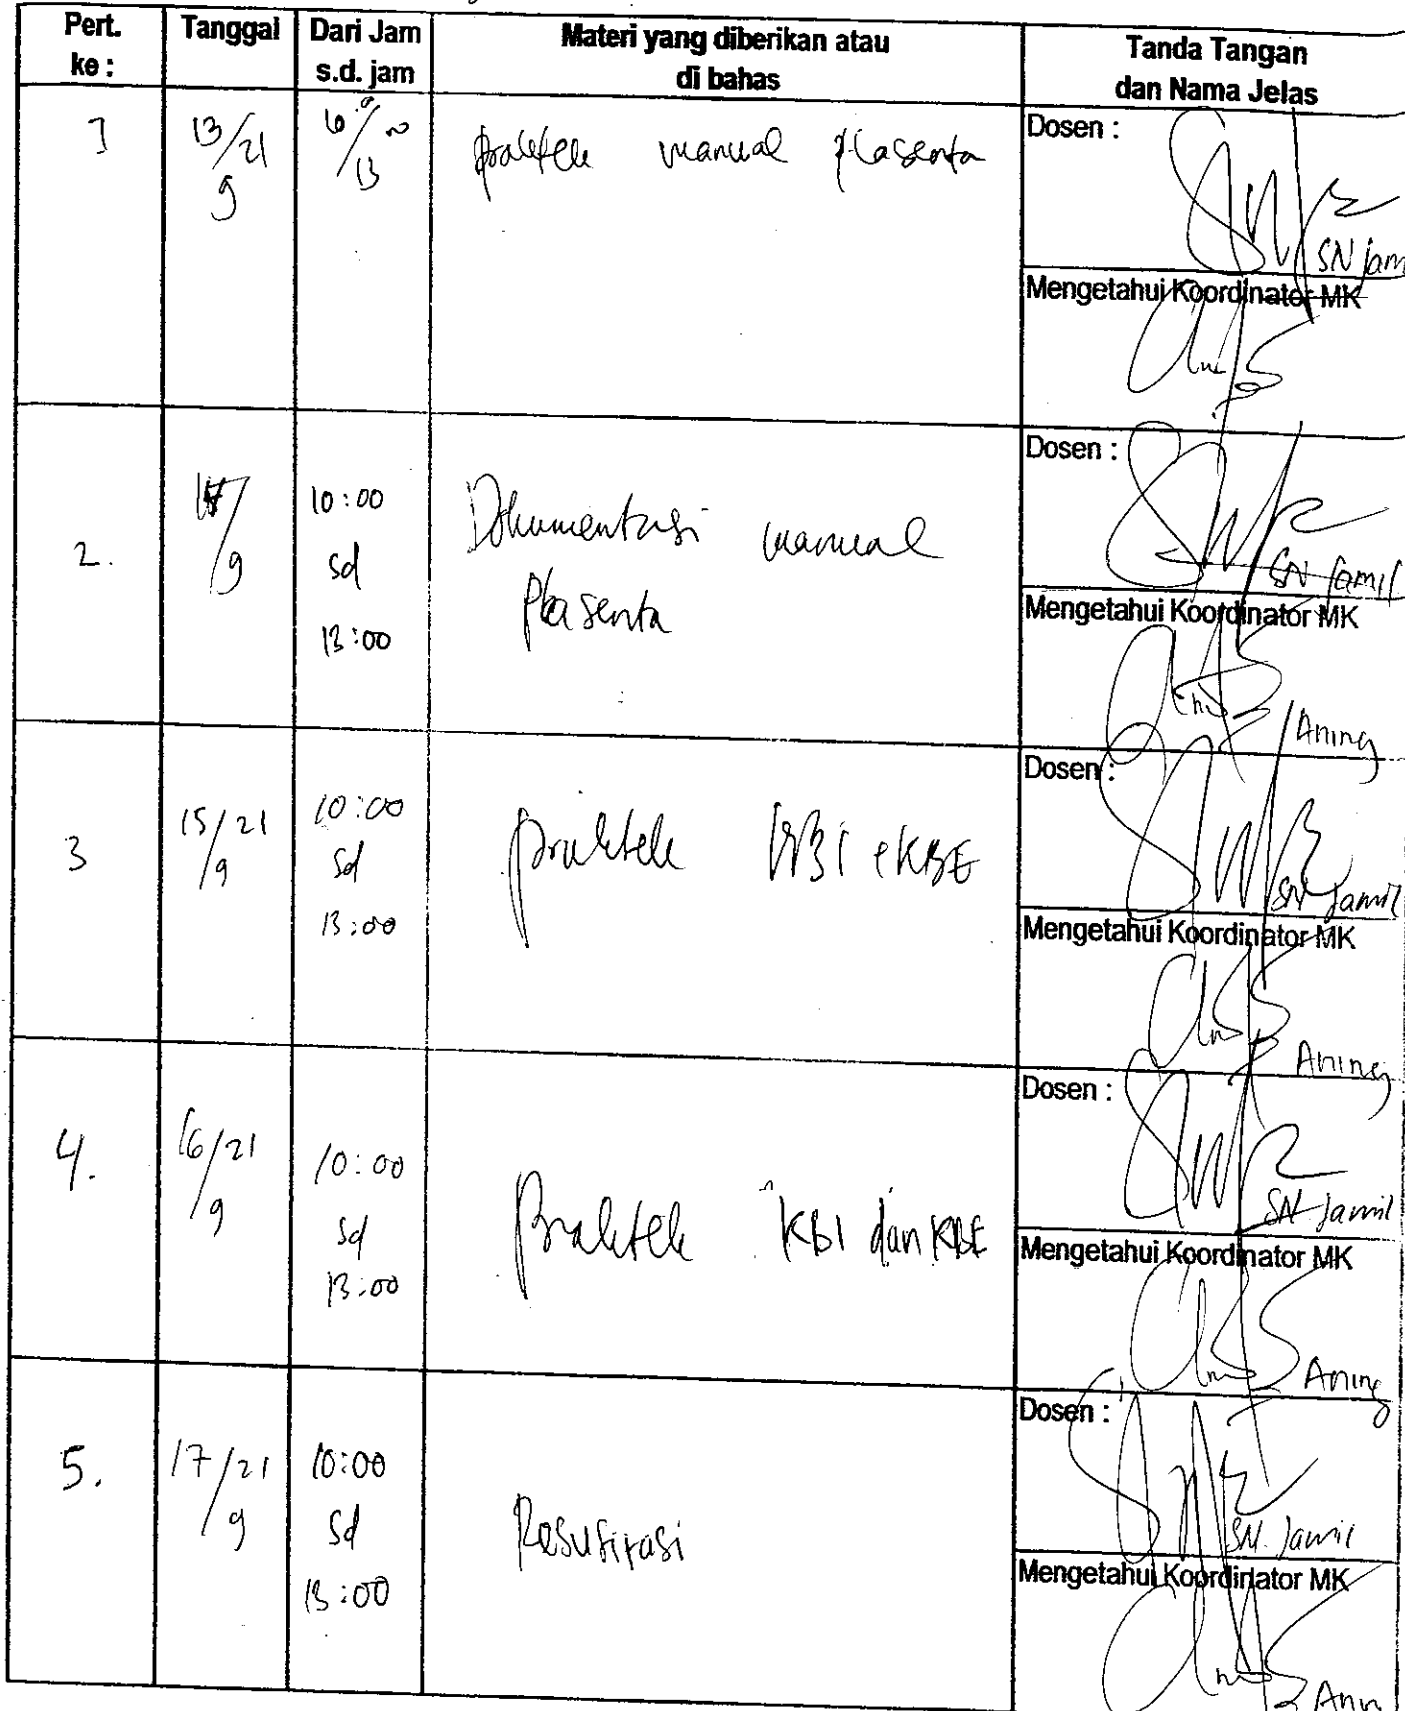 Pert. ke :
Tanggal
Dari Jam s.d. jam
Materi yang diberikan atau
di bahas
Tanda Tangan
dan Nama Jelas
1
13/21
9
13
praktek manual plasenta
Dosen :
SN Jam
Mengetahui Koordinator MK
2.
9
10:00
sd
13:00
Dokumentasi manual
plasenta
Dosen :
SN Jamil
Mengetahui Koordinator MK
Aning
3
15/21
9
10:00
sd
13:00
praktek KBI & KBE
Dosen :
SN Jamil
Mengetahui Koordinator MK
Aning
4.
16/21
9
10:00
sd
13:00
Praktek KBI dan KBE
Dosen :
SN Jamil
Mengetahui Koordinator MK
Aning
5.
17/21
9
10:00
sd
13:00
Resusitasi
Dosen :
SN. Jamil
Mengetahui Koordinator MK
Anin